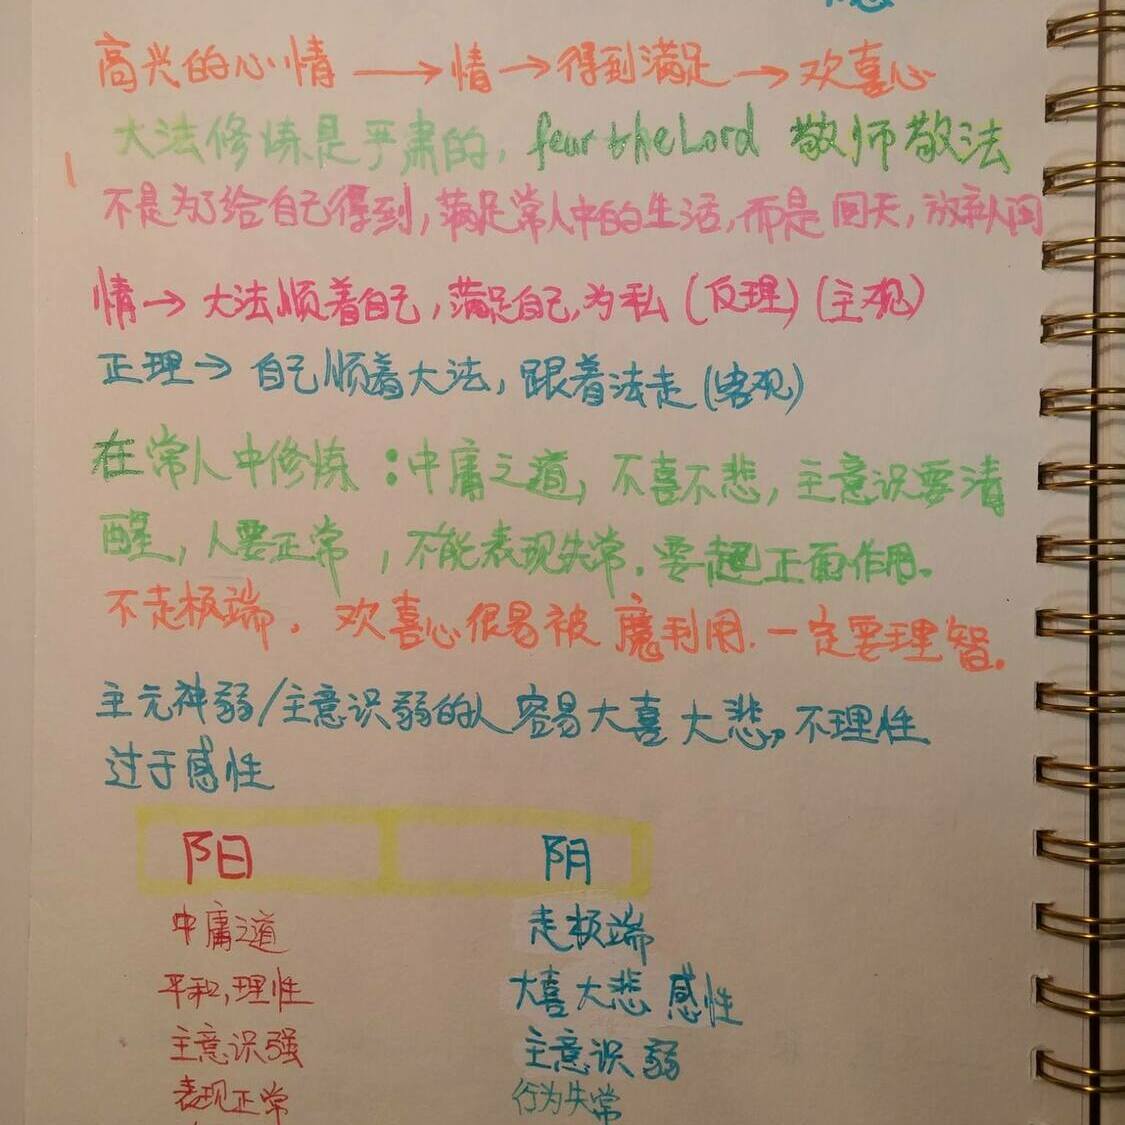 高兴的心情 → 情 → 得到满足 → 欢喜心
大法修炼是严肃的, fear the Lord 敬师敬法
不是为了给自己得到, 满足常人中的生活, 而是回天, 放弃人间
情 → 大法顺着自己, 满足自己, 为私 (反理) (主观)
正理 → 自己顺着大法, 跟着法走 (客观)
在常人中修炼：中庸之道, 不喜不悲, 主意识要清
醒, 人要正常, 不能表现失常. 要起正面作用。
不走极端. 欢喜心很易被魔利用. 一定要理智。
主元神弱/主意识弱的人容易大喜大悲, 不理性
过于感性
阳 阴
中庸之道 走极端
平和, 理性 大喜大悲 感性
主意识强 主意识弱
表现正常 行为失常